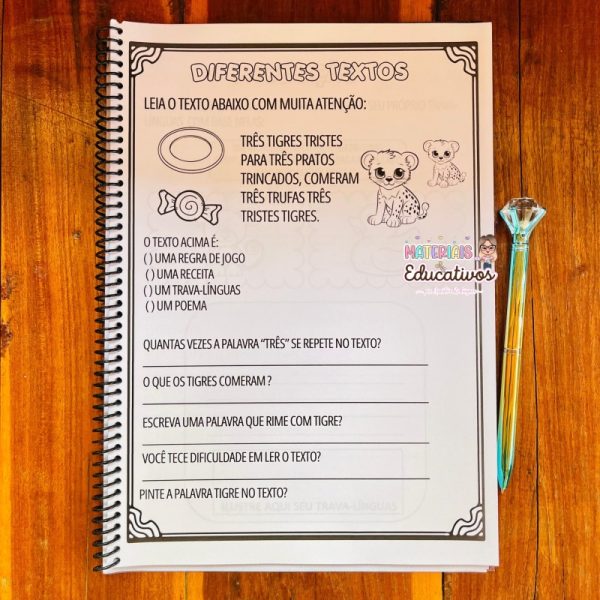 DIFERENTES TEXTOS
LEIA O TEXTO ABAIXO COM MUITA ATENÇÃO:
TRÊS TIGRES TRISTES
PARA TRÊS PRATOS
TRINCADOS, COMERAM
TRÊS TRUFAS TRÊS
TRISTES TIGRES.
O TEXTO ACIMA É:
( ) UMA REGRA DE JOGO
( ) UMA RECEITA
( ) UM TRAVA-LÍNGUAS
( ) UM POEMA
MATERIAIS
Educativos
QUANTAS VEZES A PALAVRA “TRÊS” SE REPETE NO TEXTO?
O QUE OS TIGRES COMERAM ?
ESCREVA UMA PALAVRA QUE RIME COM TIGRE?
VOCÊ TECE DIFICULDADE EM LER O TEXTO?
PINTE A PALAVRA TIGRE NO TEXTO?
ILUSTRE AQUI SEU TRAVA-LÍNGUAS